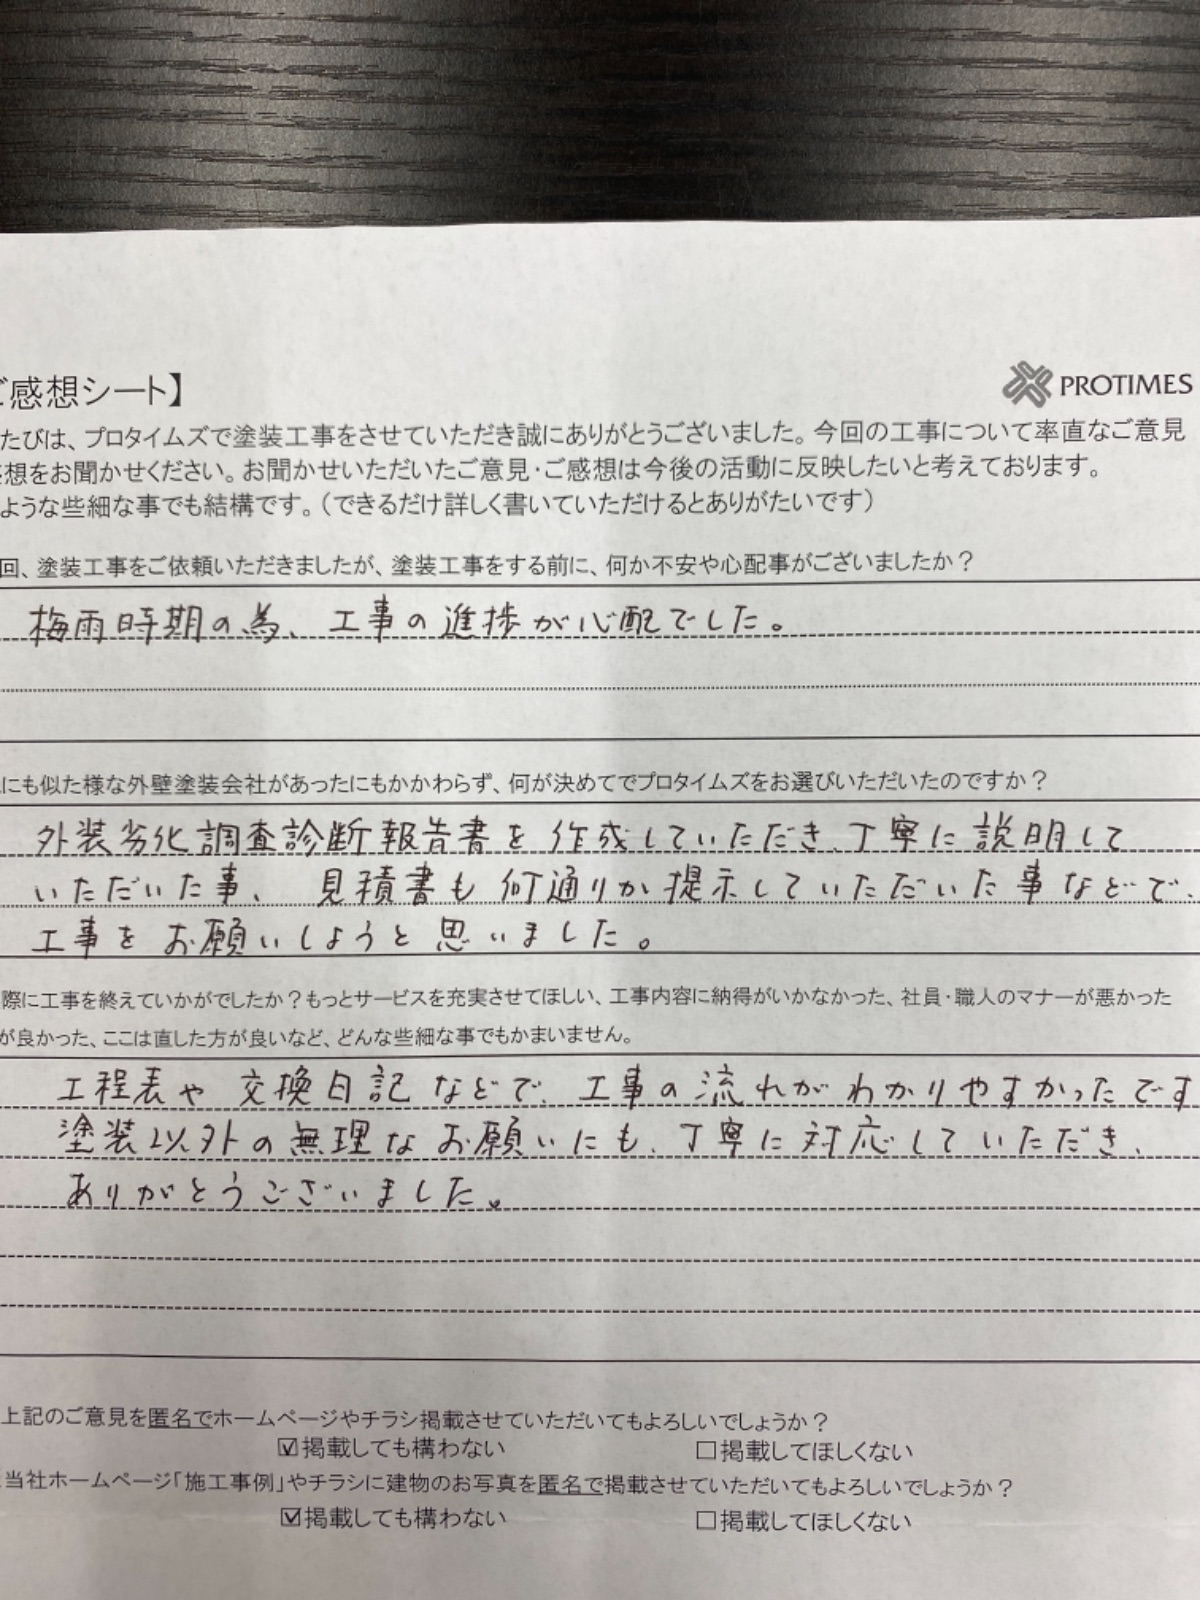 ご感想シート】
PROTIMES
たびは、プロタイムズで塗装工事をさせていただき誠にありがとうございました。今回の工事について率直なご意見
想をお聞かせください。お聞かせいただいたご意見・ご感想は今後の活動に反映したいと考えております。
ような些細な事でも結構です。（できるだけ詳しく書いていただけるとありがたいです）
回、塗装工事をご依頼いただきましたが、塗装工事をする前に、何か不安や心配事がございましたか？
梅雨時期の為、工事の進捗が心配でした。
にも似た様な外壁塗装会社があったにもかかわらず、何が決めてでプロタイムズをお選びいただいたのですか？
外装劣化調査診断報告書を作成していただき、丁寧に説明して
いただいた事、見積書も何通りか提示していただいた事などで、
工事をお願いしようと思いました。
際に工事を終えていかがでしたか？もっとサービスを充実させてほしい、工事内容に納得がいかなかった、社員・職人のマナーが悪かった
が良かった、ここは直した方が良いなど、どんな些細な事でもかまいません。
工程表や交換日記などで、工事の流れがわかりやすかったです
塗装以外の無理なお願いにも、丁寧に対応していただき、
ありがとうございました。
上記のご意見を匿名でホームページやチラシ掲載させていただいてもよろしいでしょうか？
☑掲載しても構わない ☐掲載してほしくない
当社ホームページ「施工事例」やチラシに建物のお写真を匿名で掲載させていただいてもよろしいでしょうか？
☑掲載しても構わない ☐掲載してほしくない